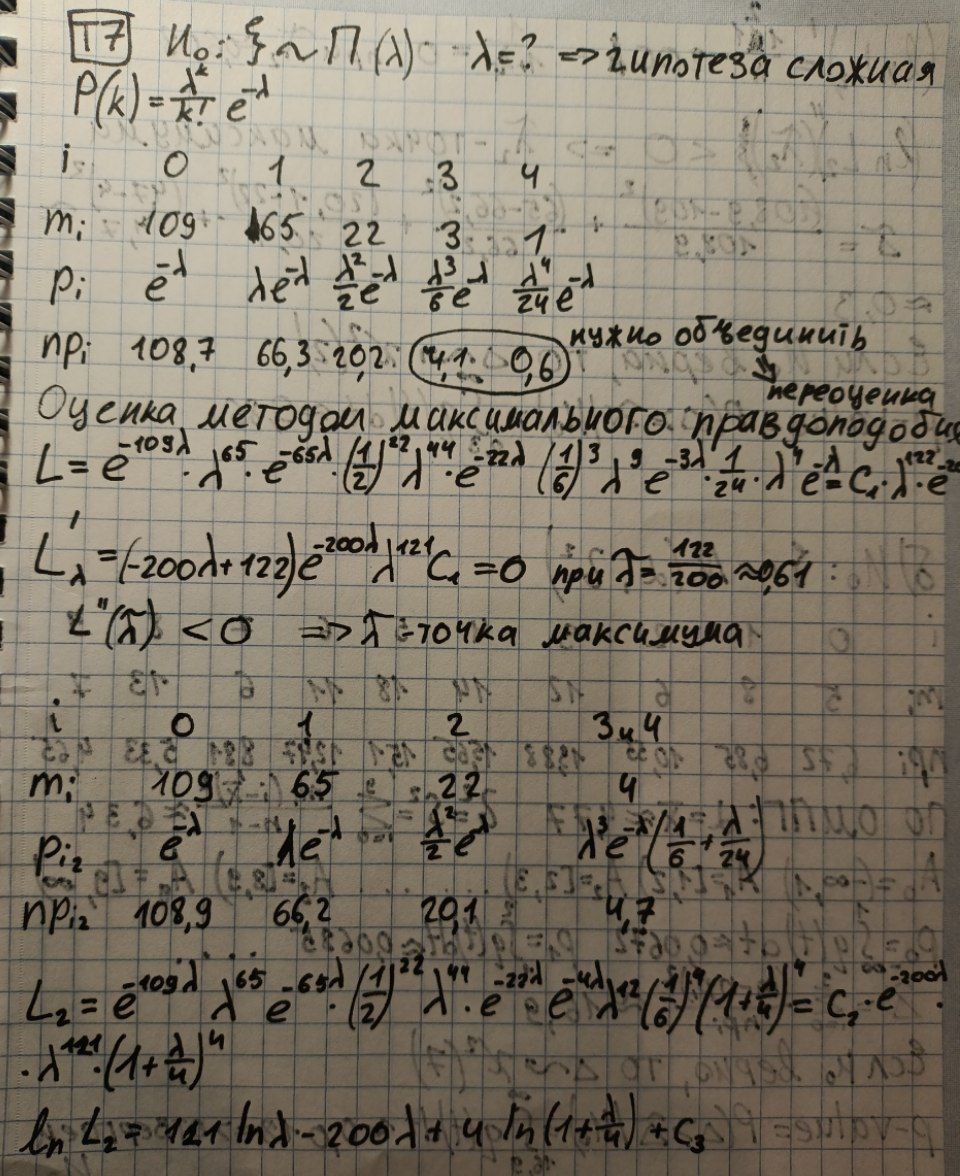 T7 H₀: ξ ~ Π(λ) λ=? => гипотеза сложная
P(k) = λᵏ/k! e^(-λ)
i 0 1 2 3 4
mᵢ 109 65 22 3 1
pᵢ e^(-λ) λe^(-λ) λ²/2 e^(-λ) λ³/6 e^(-λ) λ⁴/24 e^(-λ)
npᵢ 108,7 66,3 20,2 4,1 0,6 нужно объединить
переоценка
Оценка методом максимального правдоподобия
L = e^(-109λ) · λ^65 · e^(-65λ) · (1/2)^22 λ^44 · e^(-22λ) (1/6)^3 λ^9 e^(-3λ) · 1/24 · λ^4 e^(-λ) = C₁ · λ^122 · e^(-20
L'_λ = (-200λ+122) e^(-200λ) λ^121 C₁ = 0 при λ̃ = 122/200 ≈ 0,61 :
L''(λ̃) < 0 => λ̃ - точка максимума
i 0 1 2 3 и 4
mᵢ 109 65 22 4
pᵢ₂ e^(-λ) λe^(-λ) λ²/2 e^(-λ) λ³e^(-λ)(1/6 + λ/24)
npᵢ₂ 108,9 66,2 20,1 4,7
L₂ = e^(-109λ) λ^65 e^(-65λ) · (1/2)^22 λ^44 · e^(-22λ) e^(-4λ) λ^12 (1/6)^4 (1+λ/4)^4 = C₂ · e^(-200λ) ·
· λ^121 · (1+λ/4)^4
ln L₂ = 121 lnλ - 200λ + 4 ln(1+λ/4) + C₃